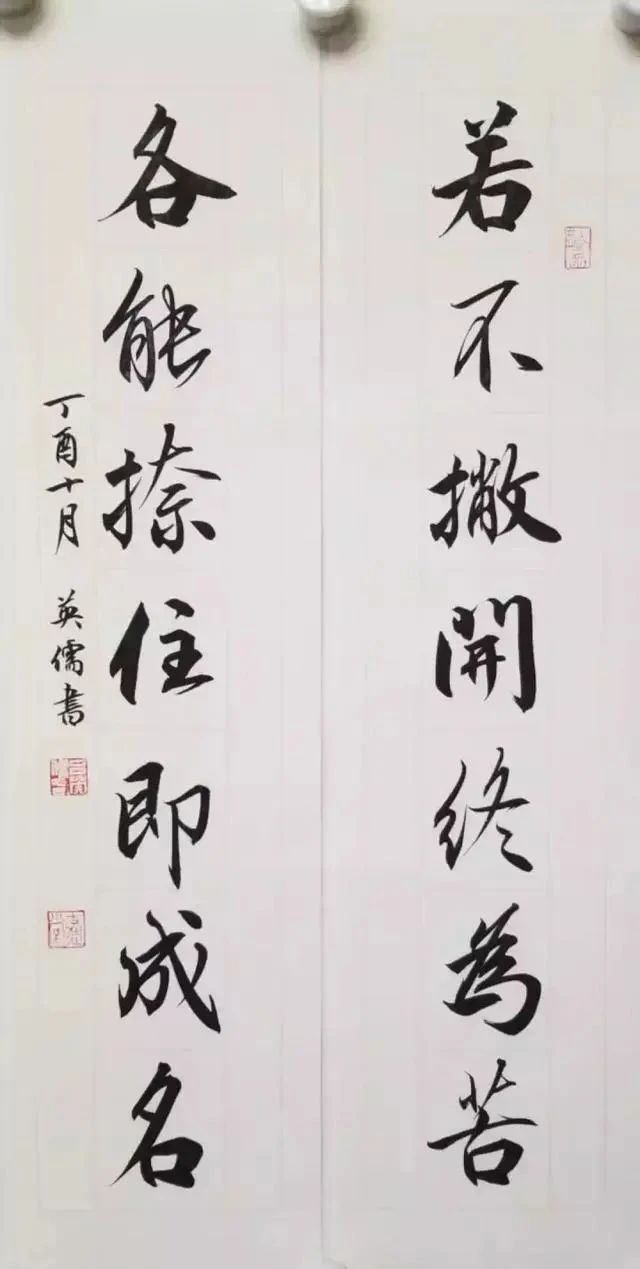 若不撇開終為苦
各能捺住即成名
丁酉十月 英儒書